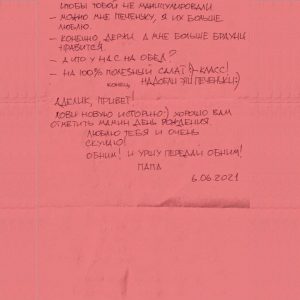 ЧТОБЫ ТОБОЙ НЕ МАНИПУЛИРОВАЛИ
– МОЖНО МНЕ ПЕЧЕНЬКУ, Я ИХ БОЛЬШЕ
ЛЮБЛЮ.
– КОНЕЧНО, ДЕРЖИ. А МНЕ БОЛЬШЕ БРАУНИ
НРАВИТСЯ.
– А ЧТО У НАС НА ОБЕД?
– НА 100% ПОЛЕЗНЫЙ САЛАТ :) – КЛАСС!
КОНЕЦ НАДОЕЛИ УЖ ПЕЧЕНЬКИ :)
ПРИВЕТ!
ЛОВИ НОВУЮ ИСТОРИЮ :) ХОРОШО ВАМ
ОТМЕТИТЬ МАМИН ДЕНЬ РОЖДЕНИЯ
ЛЮБЛЮ ТЕБЯ И ОЧЕНЬ
СКУЧАЮ!
ОБНИМ! И УРШУ ПЕРЕДАЙ ОБНИМ!
ПАПА
6.06.2021